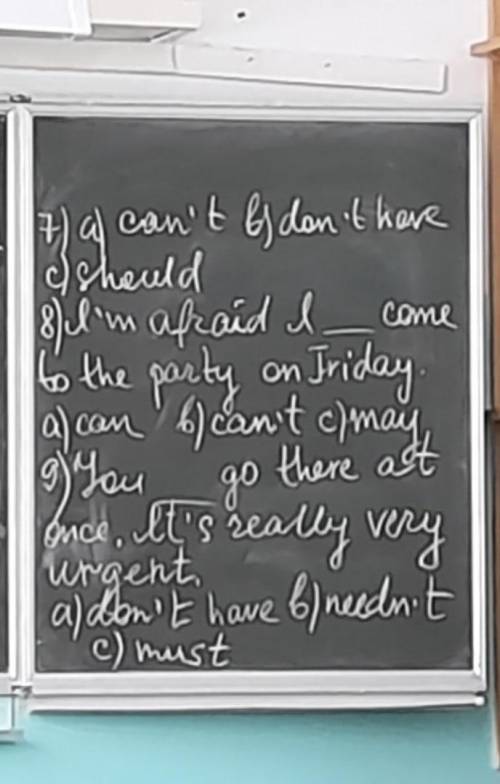 7) a) can't b) don't have
c) should
8) I'm afraid I __ come
to the party on Friday.
a) can b) can't c) may
9) You __ go there at
once. It's really very
urgent.
a) don't have b) needn't
c) must